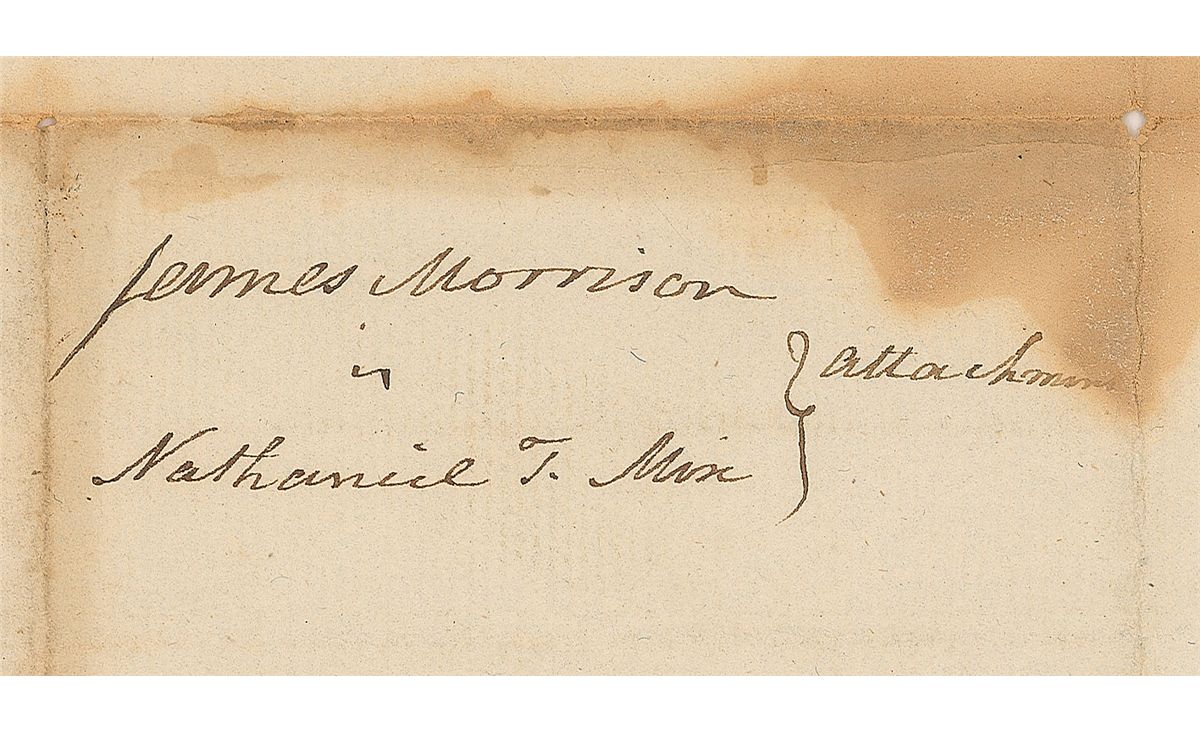 James Morrison
vs
Nathaniel T. Mix
Attachment